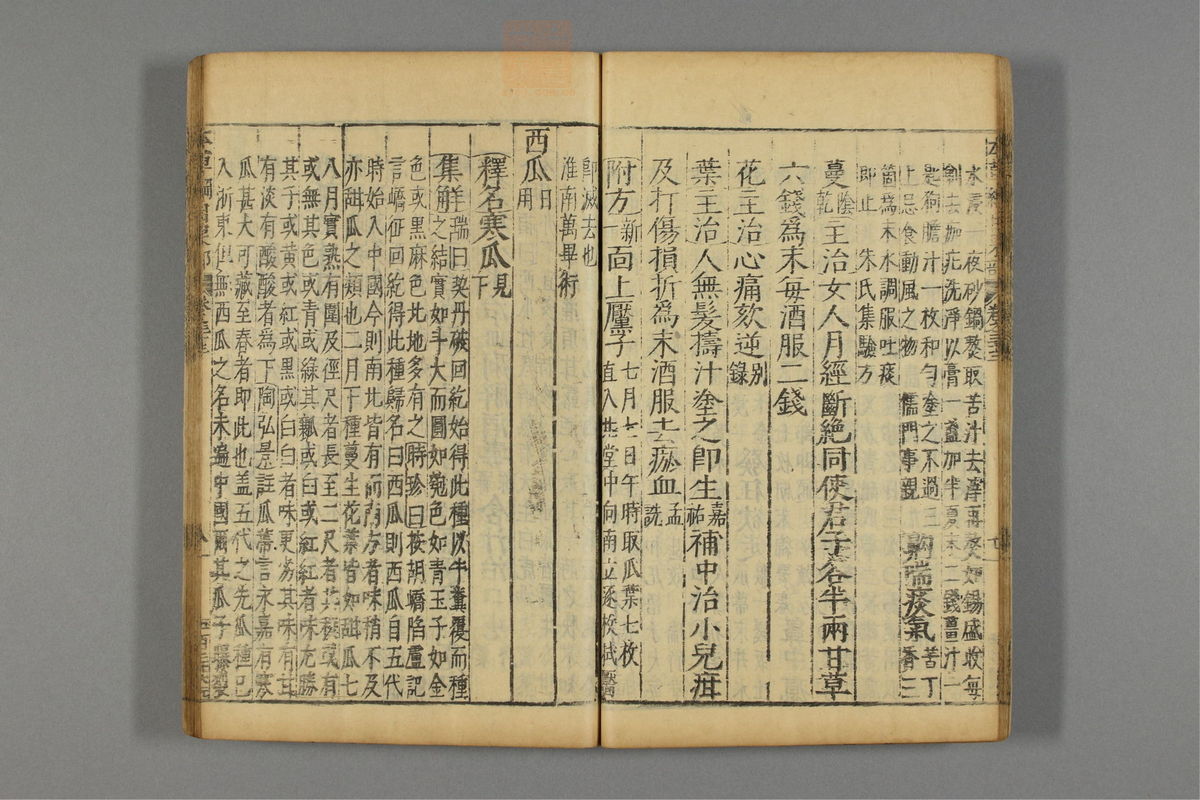 水浸一夜砂鍋熬取苦汁去滓再熬如餳盛收每
剝去痂疕洗淨以膏一盞加半夏末二錢薑汁一
匙狗膽汁一枚和勻塗之不過三
上忌食動風之物 儒門事親 齁喘痰氣 苦丁香三
箇爲末水調服吐痰
即止 朱氏集驗方
蔓 陰乾 主治女人月經斷絶同使君子各半兩甘草
六錢爲末每酒服二錢
花主治心痛欬逆 別錄
葉主治人無髮擣汁塗之即生 嘉祐 補中治小兒疳
及打傷損折爲末酒服去瘀血 孟詵
附方 新一 面上黶子 七月七日午時取瓜葉七枚
直入北堂中向南立逐枚拭黶
即滅去也
淮南萬畢術
西瓜 日用
釋名寒瓜 見下
集解 瑞曰契丹破回紇始得此種以牛糞覆而種
之結實如斗大而圓如匏色如青玉子如金
色或黑麻色北地多有之時珍曰按胡嶠陷盧記
言嶠征回紇得此種歸名曰西瓜則西瓜自五代
時始入中國今則南北皆有而南方者味稍不及
亦甜瓜之類也二月下種蔓生花葉皆如甜瓜七
八月實熟有圍及徑尺者長至二尺者其稜或有
或無其色或青或綠其瓤或白或紅紅者味尤勝
其子或黃或紅或黑或白白者味更劣其味有甘
有淡有酸酸者爲下陶弘景註瓜蒂言永嘉有寒
瓜甚大可藏至春者即此也蓋五代之先瓜種已
入浙東但無西瓜之名未遍中國爾其瓜子曝裂